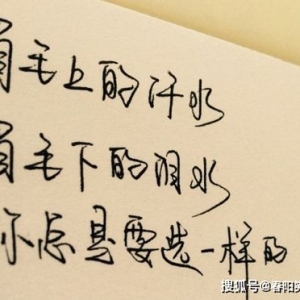 眉毛上的汗水
眉毛下的泪水
你总是要选一样的
搜狐号@春阳